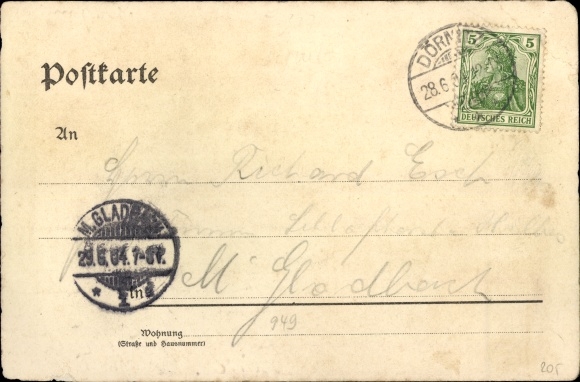 Postkarte
5 5
DEUTSCHES REICH
28.6.
An
Herrn Richard Esch
M. GLADBACH
29.6.04. 7-8V.
M Gladbach
in
949
Wohnung
(Straße und Hausnummer)
205